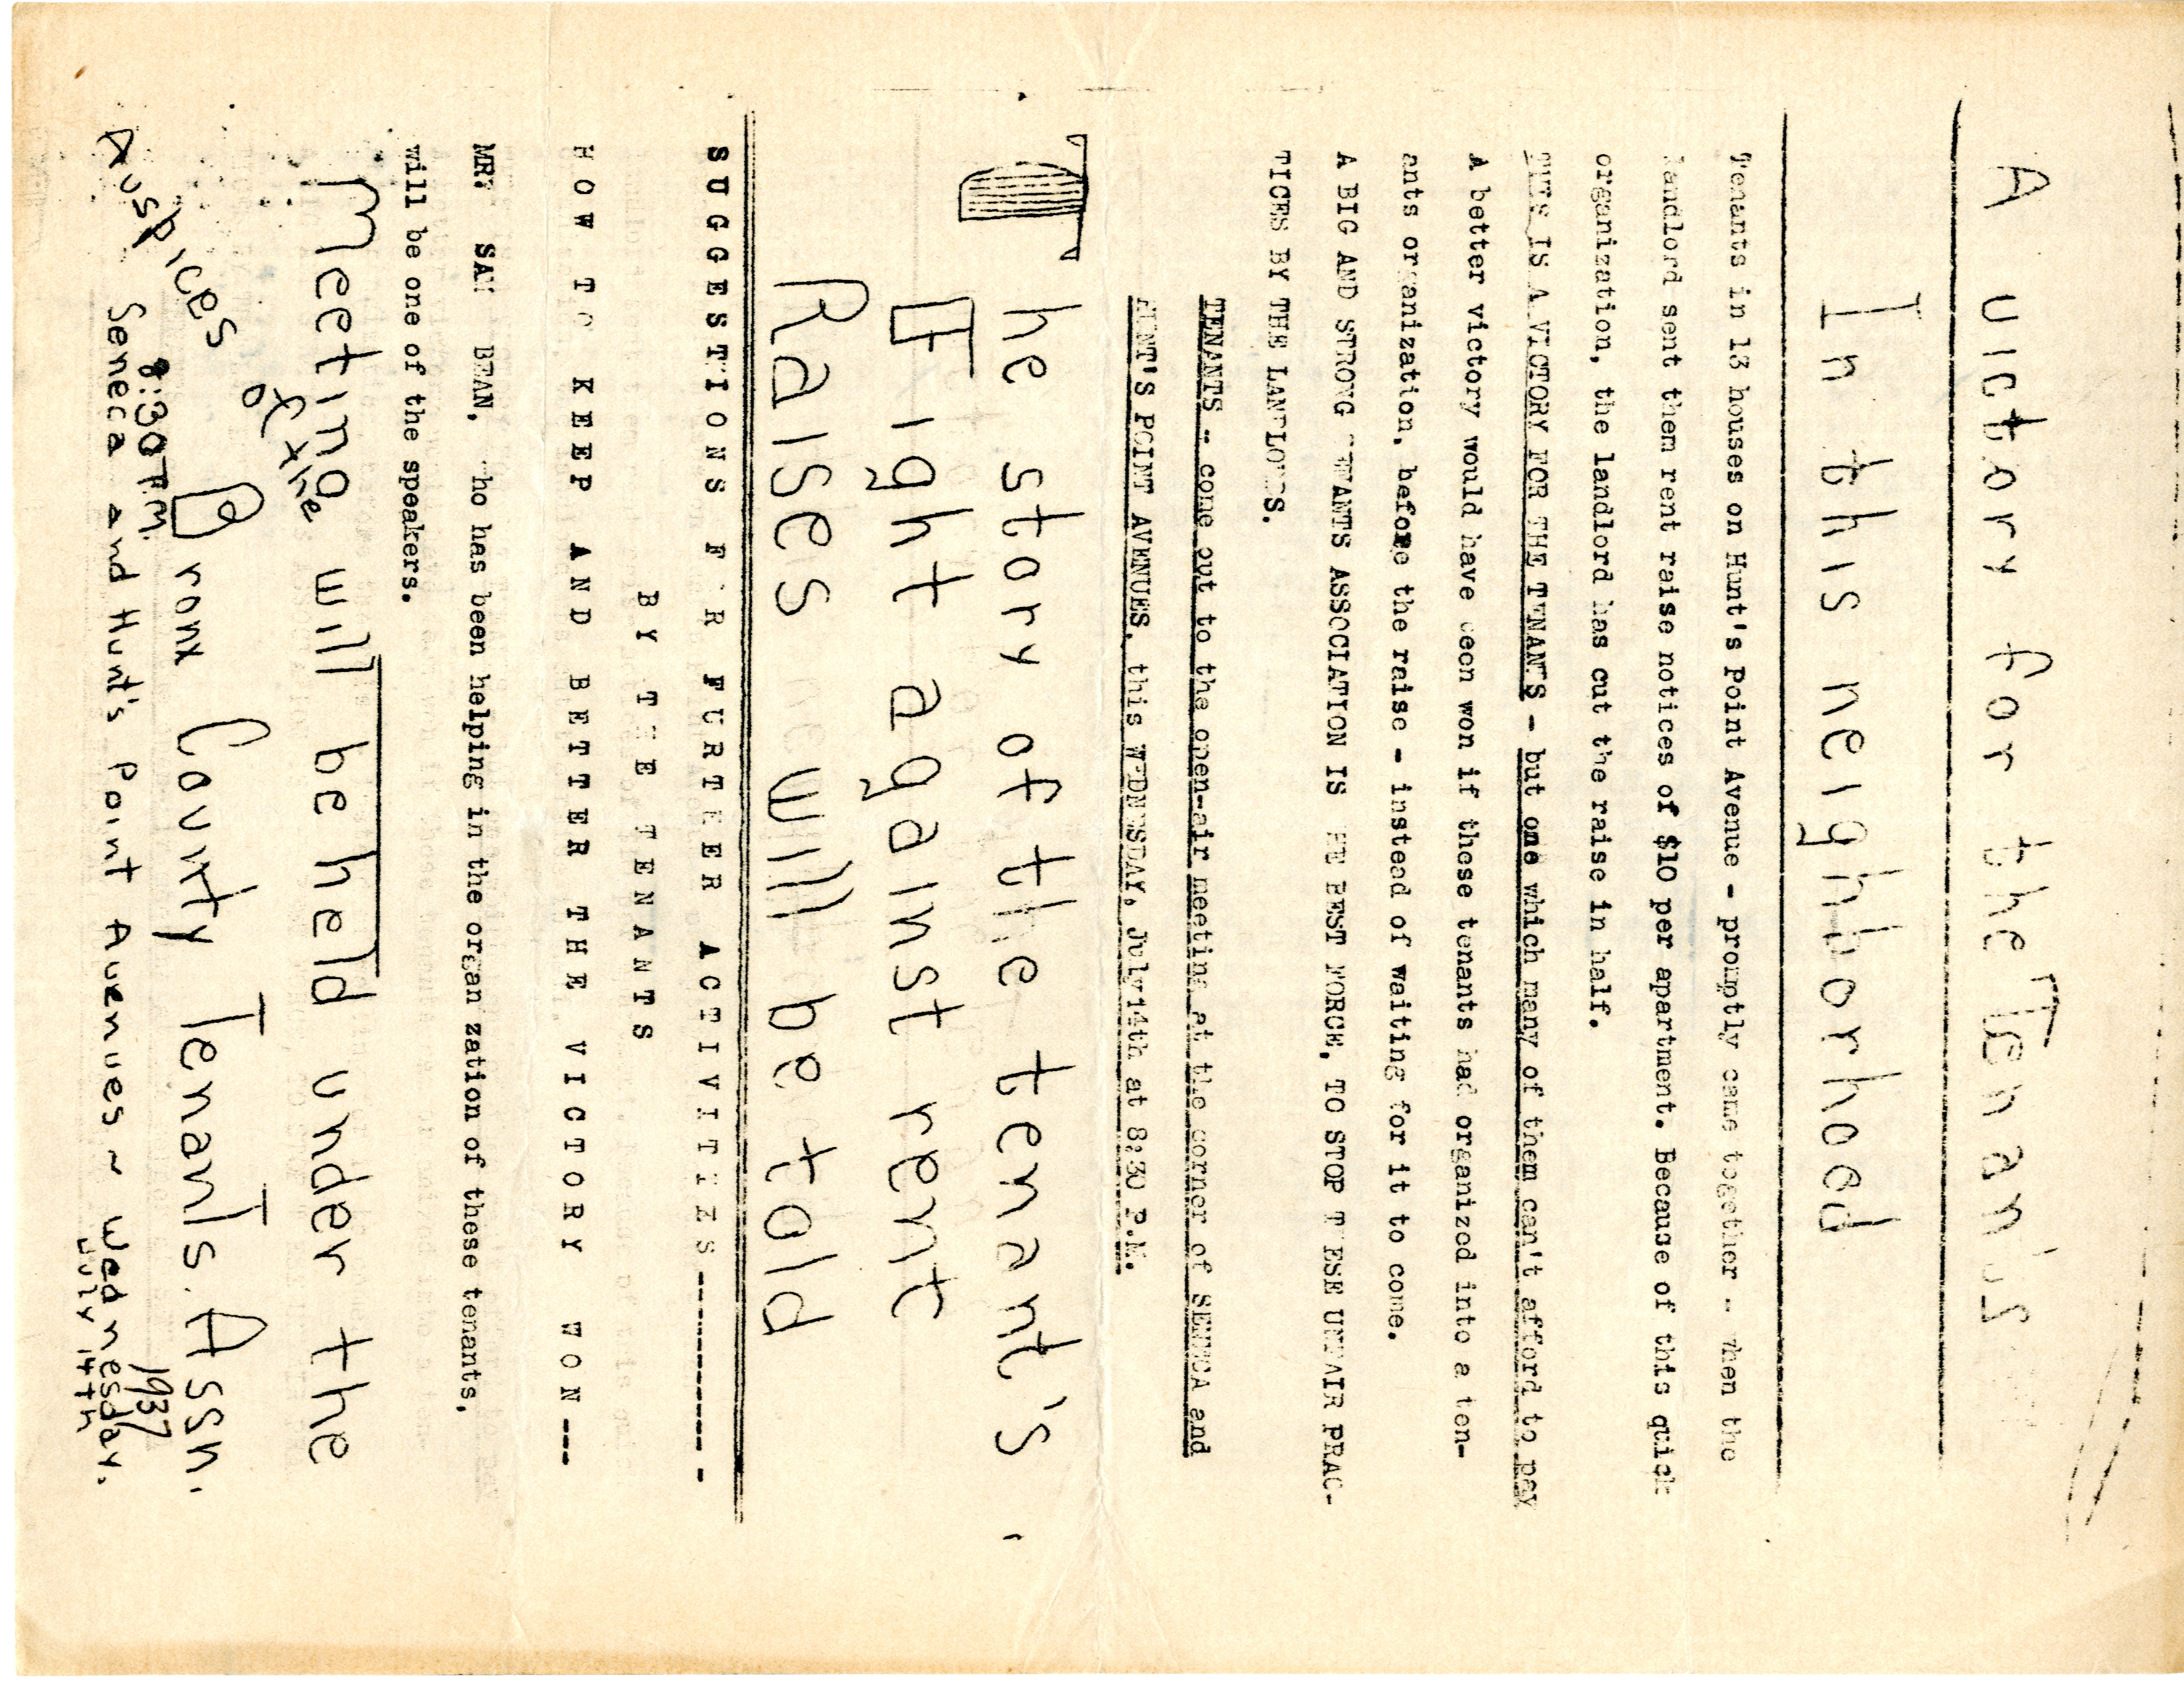 A victory for the Tenan's
In this neighborhood
Tenants in 13 houses on Hunt's Point Avenue - promptly came together -- when the
landlord sent them rent raise notices of $10 per apartment. Because of this quick
organization, the landlord has cut the raise in half.
THIS IS A VICTORY FOR THE TENANTS - but one which many of them can't afford to pay
A better victory would have been won if these tenants had organized into a ten-
ants organization, before the raise - instead of waiting for it to come.
A BIG AND STRONG TENANTS ASSOCIATION IS HE BEST FORCE, TO STOP T ESE UNFAIR PRAC-
TICES BY THE LANDLORDS.
TENANTS -- come out to the open-air meeting at the corner of SENECA and
HUNT'S POINT AVENUES, this WEDNESDAY, July 14th at 8:30 P.M.
The story of the tenant's,
Fight against rent
Raises will be told
SUGGESTIONS F R FURTHER ACTIVITIES -----------
BY THE TENANTS
HOW TO KEEP AND BETTER THE VICTORY WON ---
MR. SAM BEAN, ho has been helping in the organ zation of these tenants,
will be one of the speakers.
Meeting will be held under the
Auspices of the Bronx County Tenants. Assn.
8:30 P.M. 1937
Seneca and Hunt's Point Avenues ~ Wednesday.
July 14th